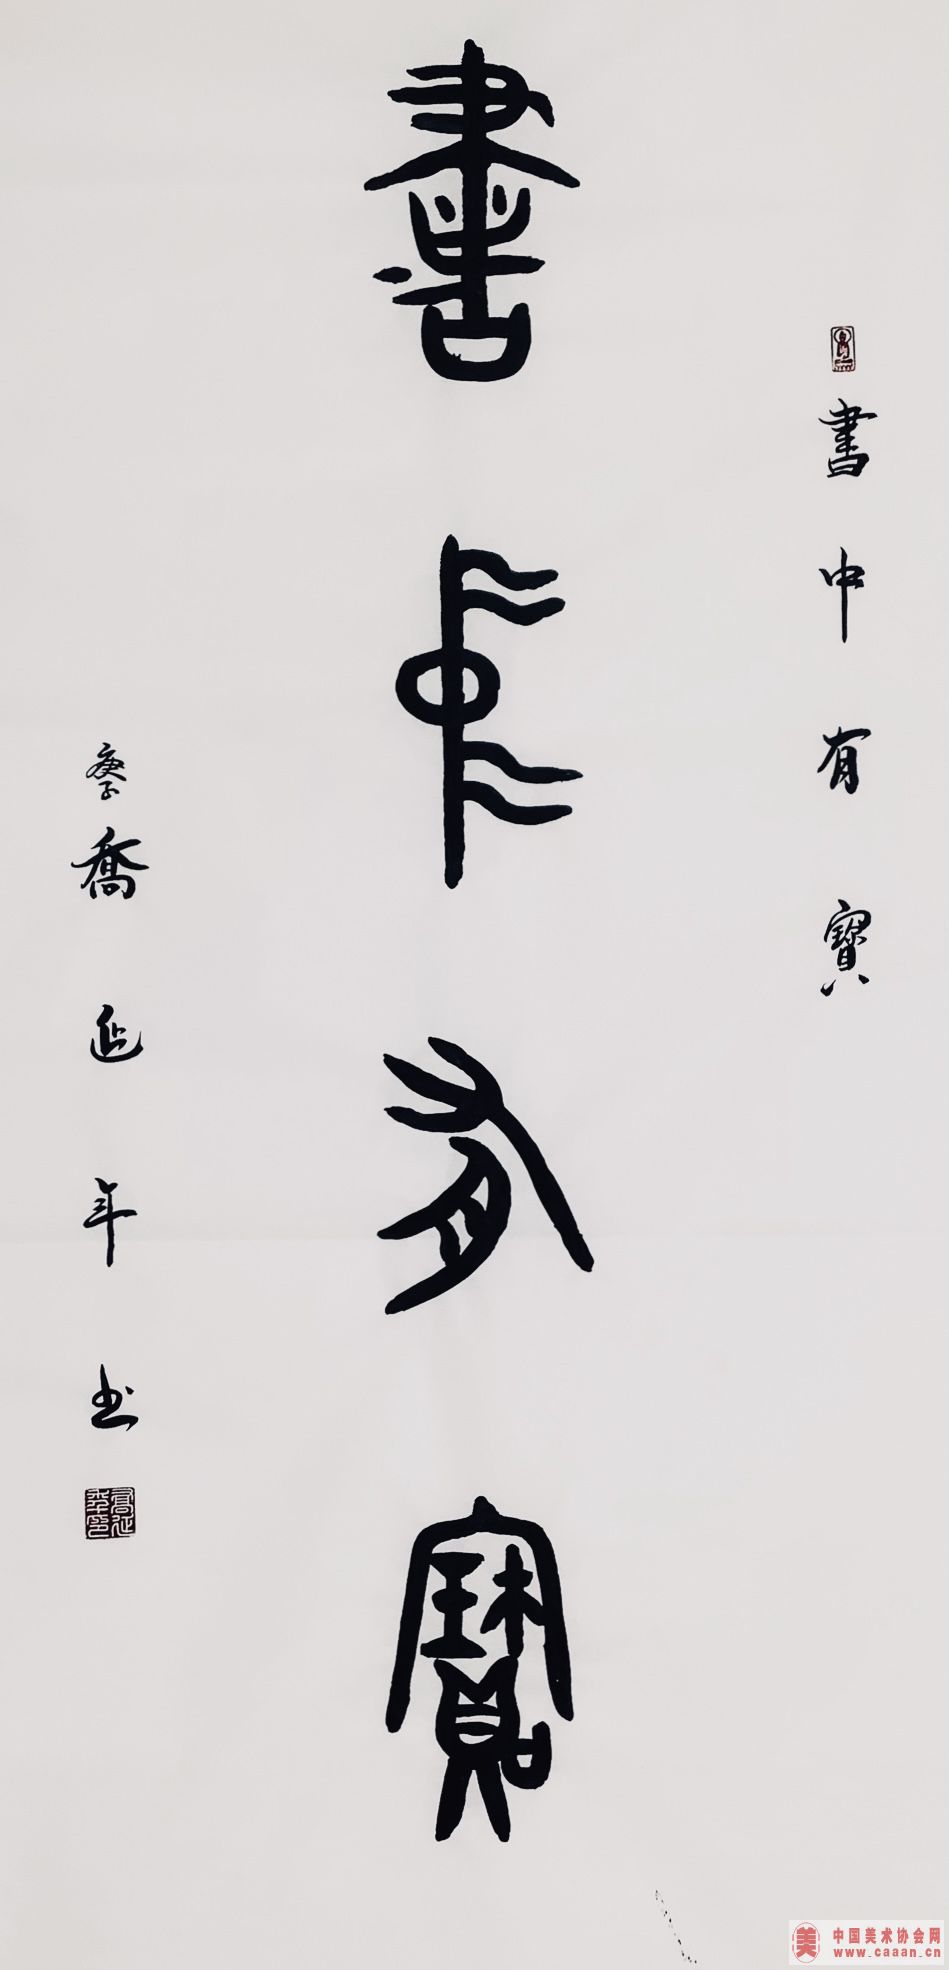 書中有寶
書中有寶
庚子喬延年书
喬延年印
中国美术协会网
www.caaan.cn